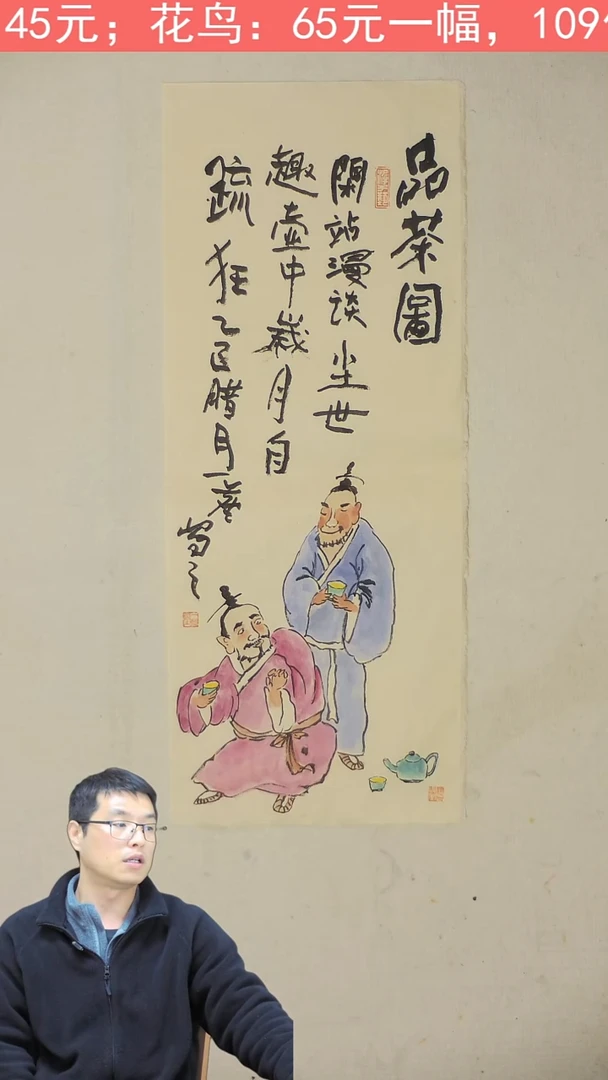 45元；花鸟：65元一幅，109
品茶圖
閑站漫談尘世
趣壶中歲月自
疏狂乙巳腊月一葵